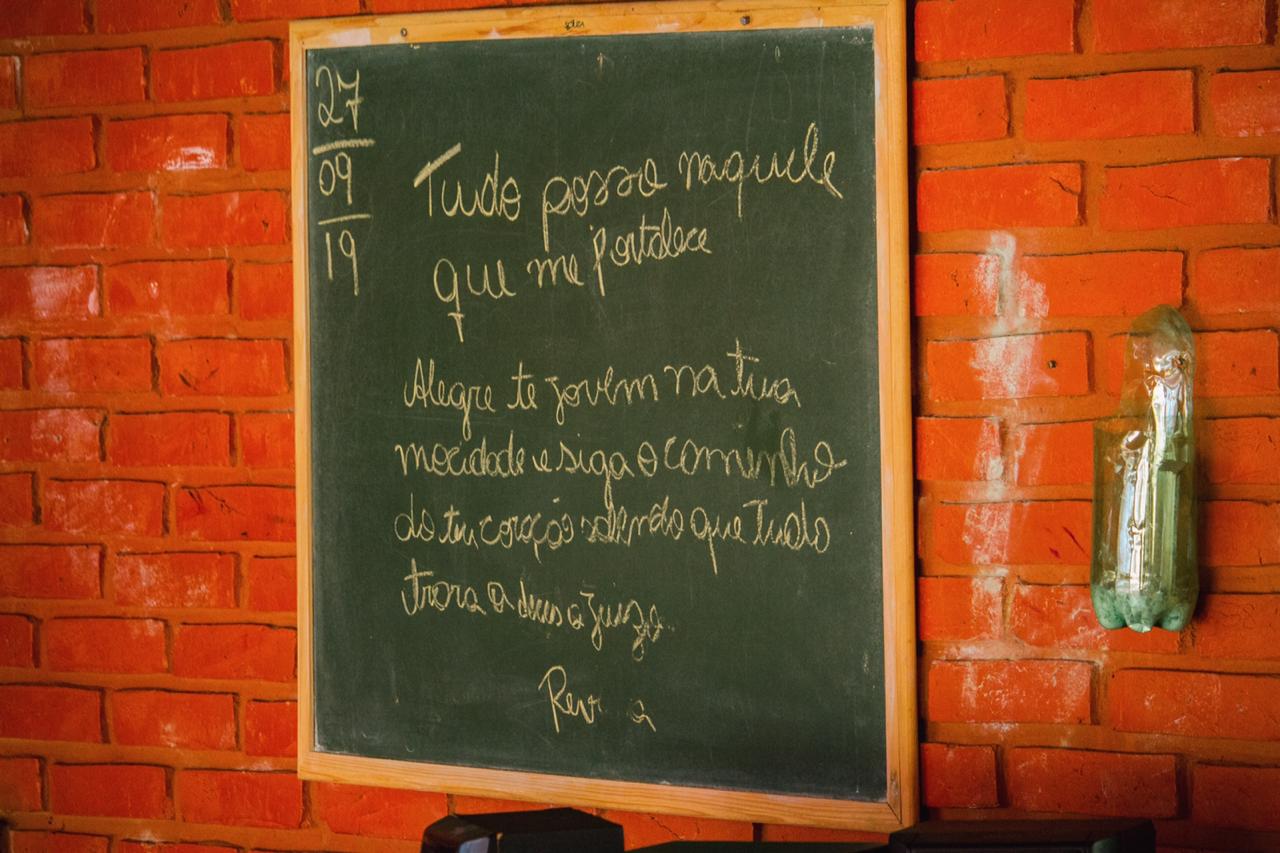 27
09
19
Tudo posso naquele
que me fortalece
Alegre te jovem na tua
mocidade e siga o caminho
do teu coração sabendo que tudo
trara a deus a